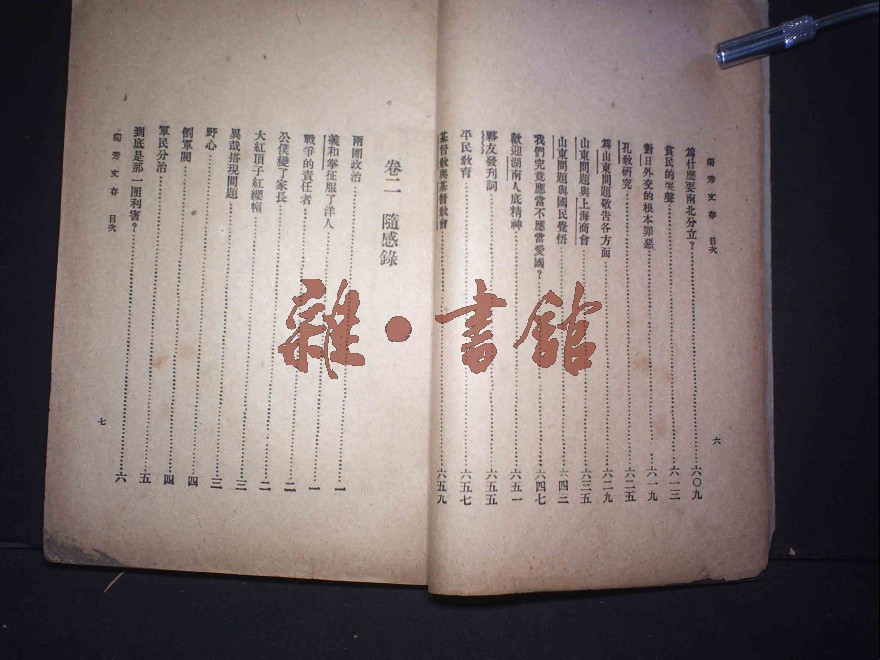 獨秀文存 目次
為什麼要南北分立?……六〇九
貧民的哭聲……六一三
對日外交的根本罪惡……六一九
孔教研究……六二五
為山東問題敬告各方面……六二九
山東問題與上海商會……六三五
山東問題與國民覺悟……六四二
我們究竟應當不應當愛國?……六四七
歡迎湖南人底精神……六五一
夥友發刊詞……六五五
平民教育……六五七
基督教與基督教會……六五九
六
卷二 隨感錄
兩團政治……一
義和拳征服了洋人……一
戰爭的責任者……一
公僕變了家長……二
大紅頂子紅纓帽……二
異哉搭現問題……三
野心……三
倒軍閥……四
軍民分治……四
到底是那一團利害?……五
……六
獨秀文存 目次
七
雜·書館